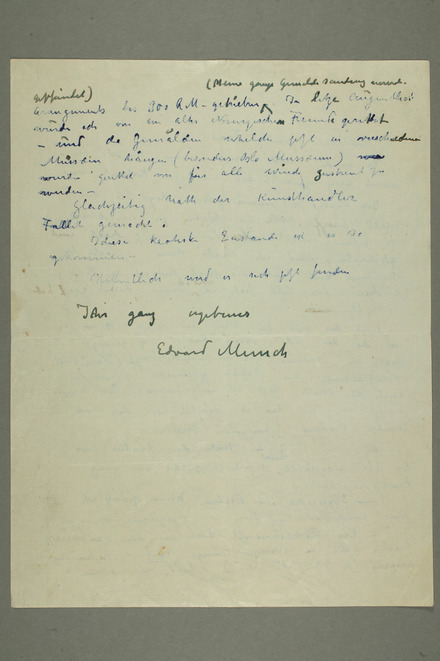 (Meine ganze Gemäldesamlung wurde
gepfändet)
Arrangements des 300 R.M- geblieben In letze Augenblick
würde ich von ein alter Norwegischen Freunde gerettet
– und die Gemälden welche jetzt in verschiedene
Museen hängen (besonders Oslo Museum)
wurde gerettet von für alle Winde zu
werden –
Gleichzeitig hatte der Kunsthandler
Fallit gemacht
Diese Zustande ist es so
gekommen –
Hoffentlich wird es sich jetzt finden
Ihr ganz ergebener
Edvard Munch